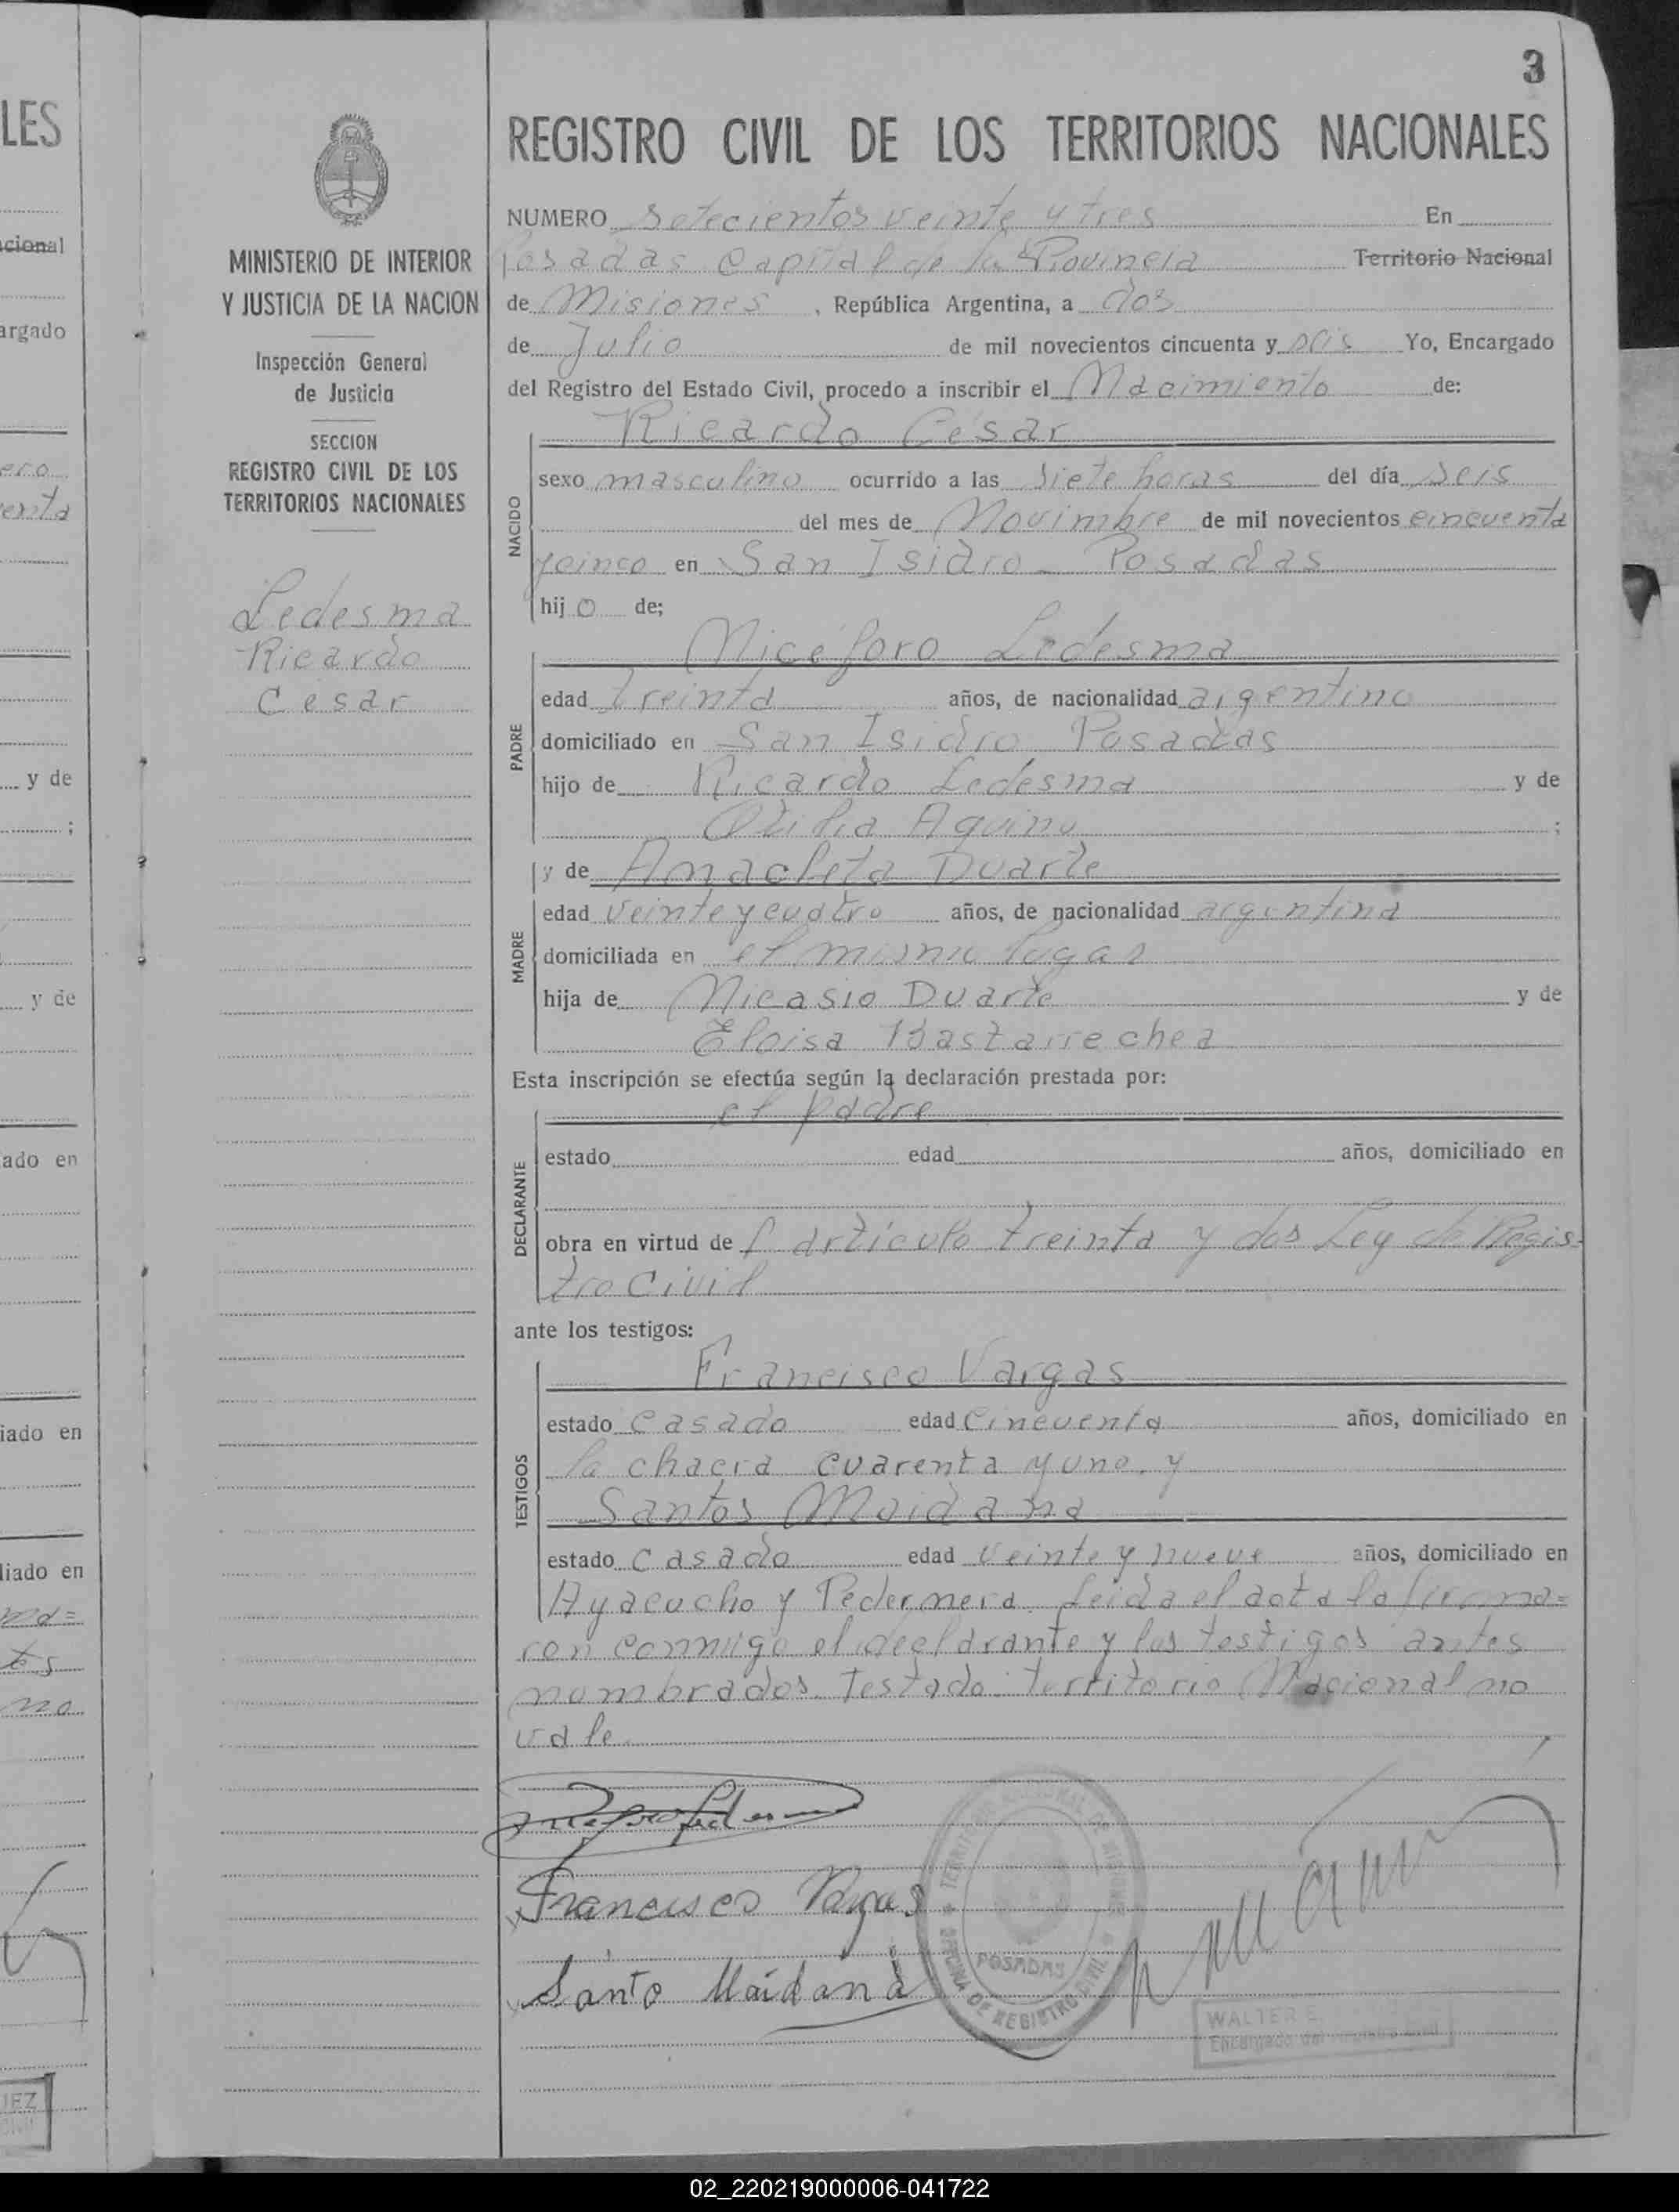 3
LES
REGISTRO CIVIL DE LOS TERRITORIOS NACIONALES
NUMERO Setecientos veinte y tres En
Posadas Capital de la Provincia Territorio Nacional
de Misiones, República Argentina, a dos
de Julio de mil novecientos cincuenta y seis Yo, Encargado
del Registro del Estado Civil, procedo a inscribir el Nacimiento de:
Ricardo César
NACIDO
sexo masculino ocurrido a las siete horas del día seis
del mes de Novimbre de mil novecientos cincuenta
y cinco en San Isidro - Posadas
hijo de;
Nicéforo Ledesma
PADRE
edad treinta años, de nacionalidad argentino
domiciliado en San Isidro Posadas
hijo de Ricardo Ledesma y de
Otilia Aquino ;
y de Anacleta Duarte
MADRE
edad veinte y cuatro años, de nacionalidad argentina
domiciliada en el mismo lugar
hija de Nicasio Duarte y de
Eloisa Bastarrechea
Esta inscripción se efectúa según la declaración prestada por:
el padre
DECLARANTE
estado edad años, domiciliado en
obra en virtud del artículo treinta y dos Ley de Regis-
tro Civil
ante los testigos:
Francisco Vargas
TESTIGOS
estado casado edad cincuenta años, domiciliado en
la chacra cuarenta y uno. y
Santos Maidana
estado casado edad veinte y nueve años, domiciliado en
Ayacucho y Pedernera. Leida el acta la firma=
ron conmigo el declarante y los testigos antes
nombrados. Testado: territorio Nacional no
vale.
Francisco Vargas
Santo Maidana
TERRITORIO NACIONAL DE MISIONES
OFICINA DE REGISTRO CIVIL
POSADAS
WALTER E.
Encargado del Registro Civil
MINISTERIO DE INTERIOR
Y JUSTICIA DE LA NACION
Inspección General
de Justicia
SECCION
REGISTRO CIVIL DE LOS
TERRITORIOS NACIONALES
Ledesma
Ricardo
César
cional
argado
y de
;
y de
ado en
iado en
liado en
02_220219000006-041722